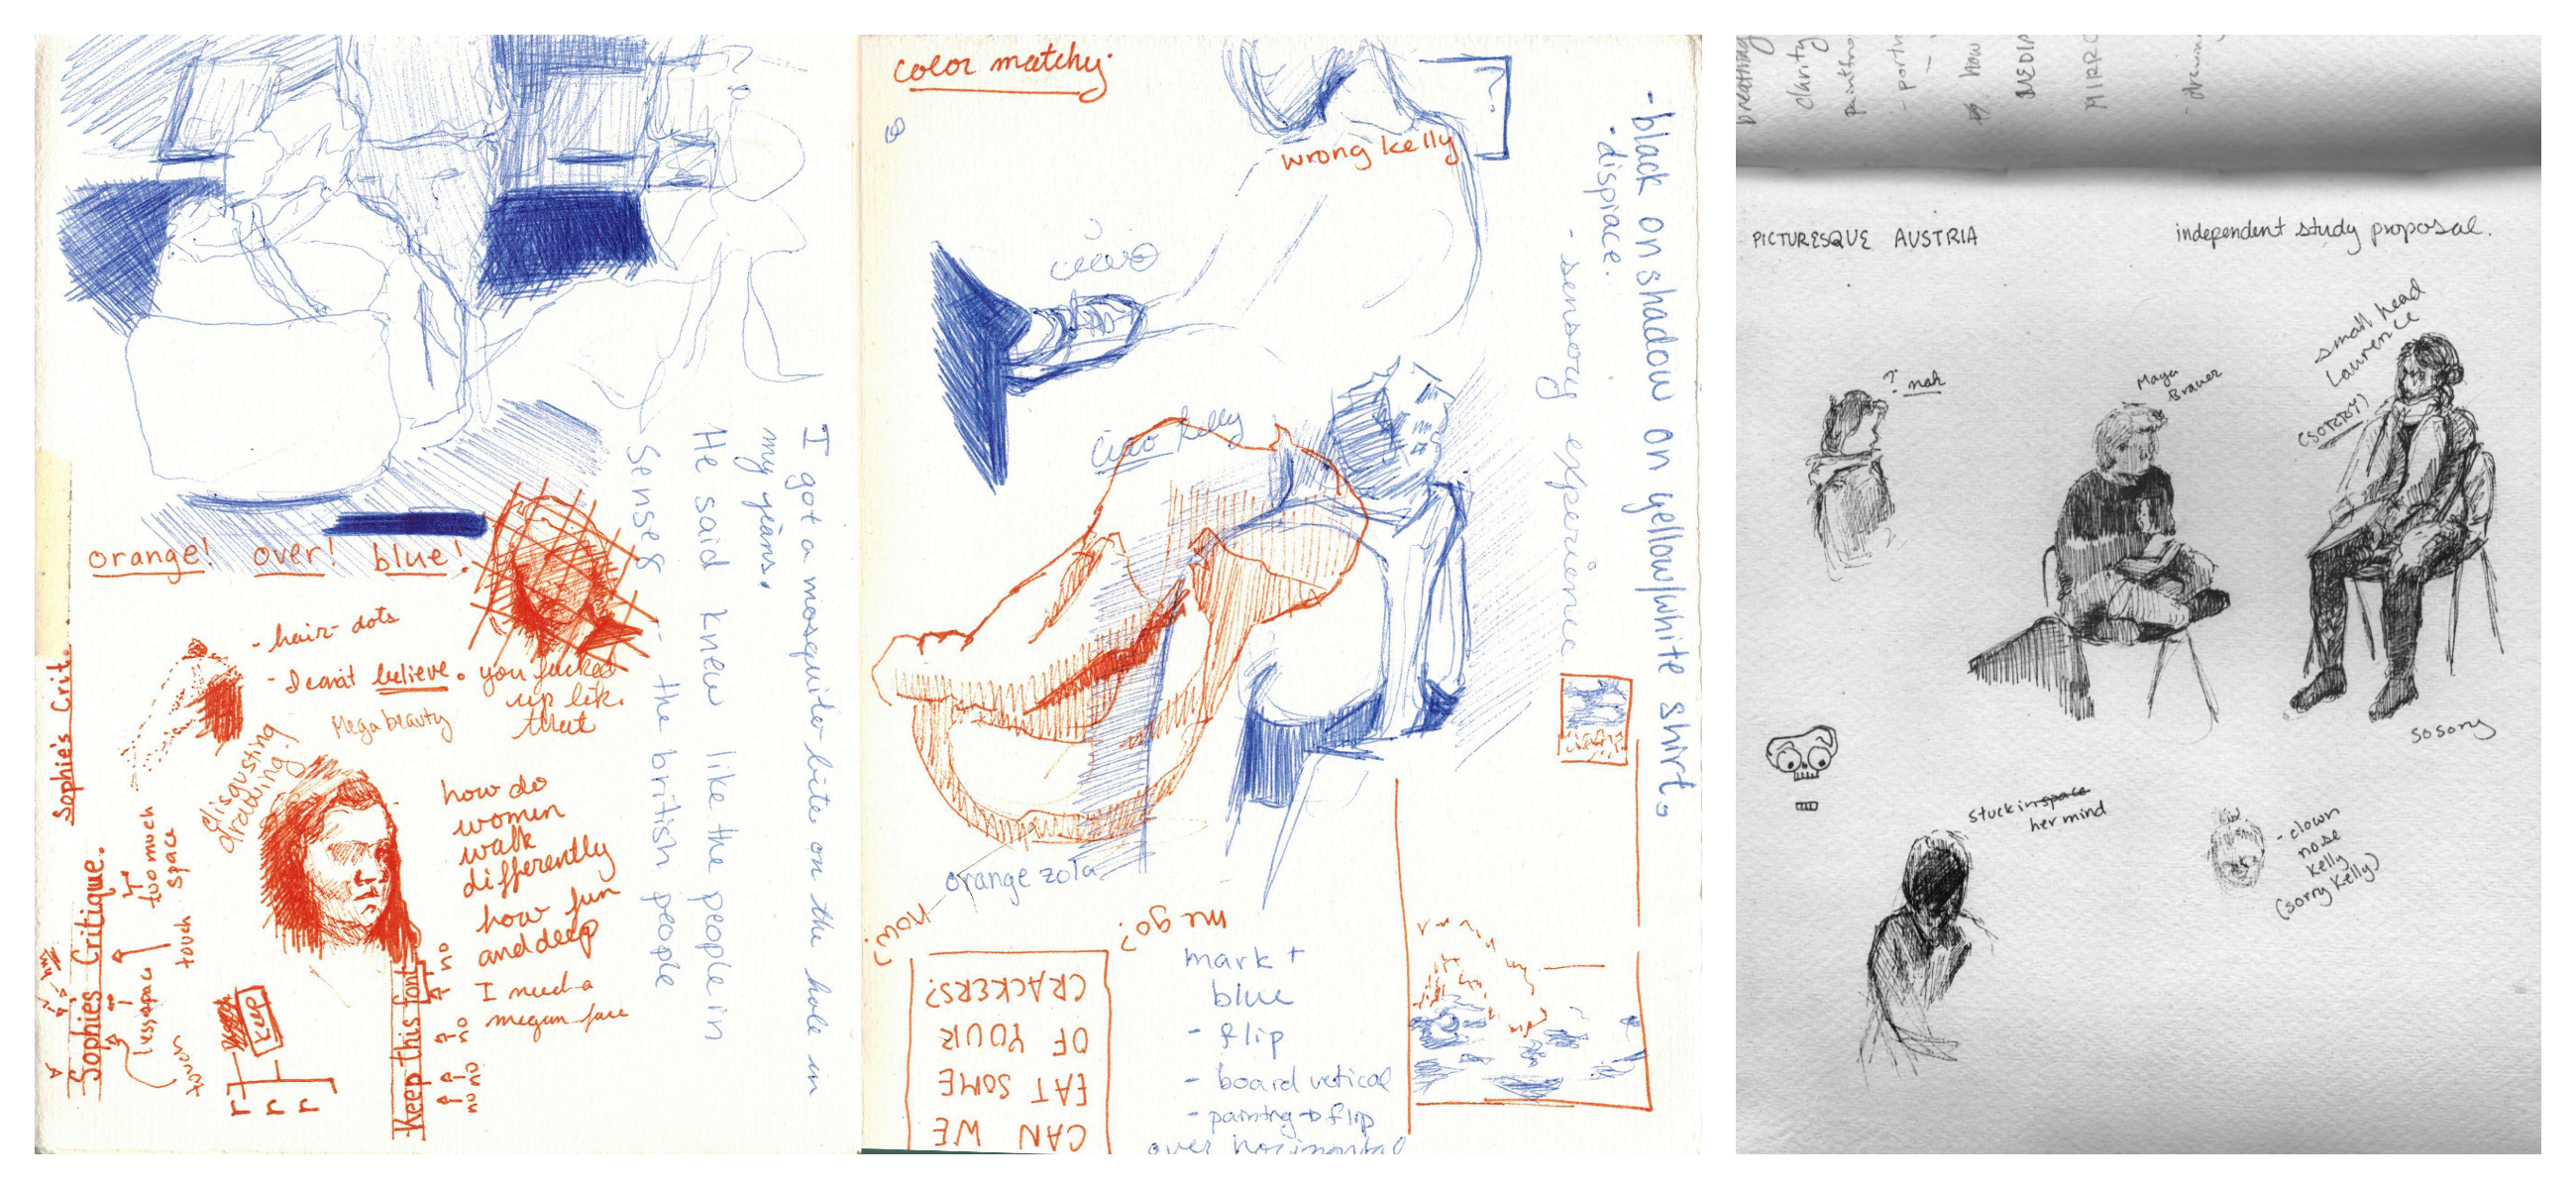 orange! over! blue!
- hair dots
- I cant believe. you fucked
up lik.
that
Mega beauty
disgusting
drawing!
how do
women
walk
differently
how fun
and deep
I need a
megan face
Sophie's Crit.
Sophies Critique.
too much
space
touch
less space
touch
keep
r
r
r
Keep this font
no
no
no no
I got a mosquito bite on the hole in
my jeans.
He said knew like the people in
Sense8 -- the british people
color matchy.
wrong kelly
- black on shadow on yellow/white shirt.
- displace.
- sensory experience
ciao
Ciao Kelly
orange zola
now?
me go?
CAN WE
EAT SOME
OF YOUR
CRACKERS?
mark +
blue
- flip
- board vetical
- painting → flip
over horizontal
breathing
clarity
- how
MEDIA
MIRRO
- drawing
PICTURESQUE AUSTRIA
independent study proposal.
? nah
Maya
Brauer
small head
Laurence
(SORRY)
so sorry
stuck in space
her mind
- clown
nose
Kelly
(sorry Kelly)